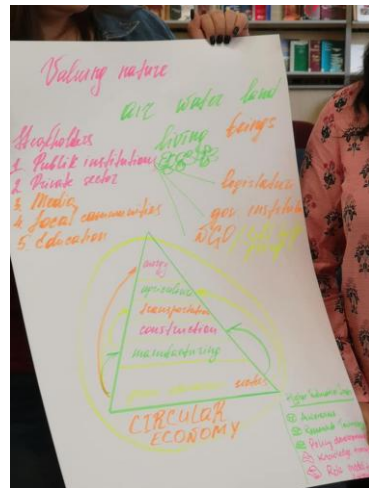 Valuing nature
air water land
living beings
Stakeholders
1. Publik institutions
2. Private sector
3. Media
4. Local communities
5. Education
legislation
gov institut
NGO
energy
agriculture
transportation
construction
manufacturing
waste
CIRCULAR
ECONOMY
Awareness
Policy
Knowledge
Role